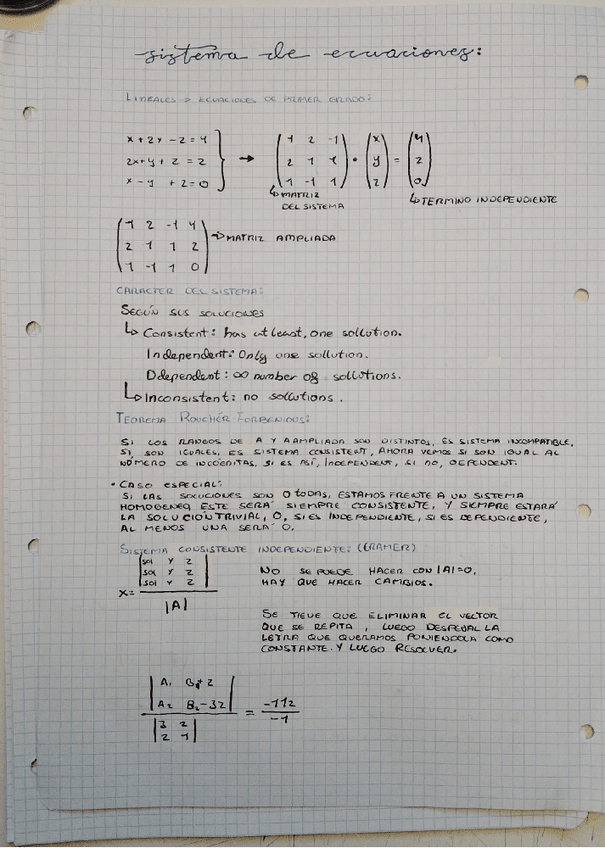 sistema de ecuaciones:
LINEALES → ECUACIONES DE PRIMER GRADO:
x + 2y - z = 4
2x + y + z = 2
x - y + z = 0
→
1 2 -1
2 1 1
1 -1 1
·
x
y
z
=
4
2
0
↳ MATRIZ
DEL SISTEMA
↳ TERMINO INDEPENDIENTE
1 2 -1 4
2 1 1 2
1 -1 1 0
→ MATRIZ AMPLIADA
CARACTER DEL SISTEMA:
SEGÚN SUS SOLUCIONES
↳ Consistent: has at least, one sollution.
Independent: Only one sollution.
Ddependent: ∞ number of sollutions.
↳ Inconsistent: no sollutions.
TEOREMA ROUCHÉR-FORBENIOUS:
SI LOS RANGOS DE A Y A AMPLIADA SON DISTINTOS, ES SISTEMA INCOMPATIBLE,
SI, SON IGUALES, ES SISTEMA CONSISTENT, AHORA VEMOS SI SON IGUAL AL
NÚMERO DE INCÓGNITAS, SI ES ASÍ, INDEPENDENT, SI NO, DEPENDENT.
• CASO ESPECIAL:
SI LAS SOLUCIONES SON 0 TODAS, ESTAMOS FRENTE A UN SISTEMA
HOMOGENEO, ESTE SERÁ SIEMPRE CONSISTENTE, Y SIEMPRE ESTARÁ
LA SOLUCIÓN TRIVIAL, 0, SI ES INDEPENDIENTE, SI ES DEPENDIENTE,
AL MENOS UNA SERÁ 0.
SISTEMA CONSISTENTE INDEPENDIENTE: (CRAMER)
x =
sol Y Z
sol Y Z
sol Y Z
|A|
NO SE PUEDE HACER CON |A|=0,
HAY QUE HACER CAMBIOS.
SE TIEVE QUE ELIMINAR EL VECTOR
QUE SE REPITA, LUEGO DESPEJAL LA
LETRA QUE QUERAMOS PONIENDOLA COMO
CONSTANTE. Y LUEGO RESOLVER.
A₁ B₁+z
A₂ B₂-3z
3 2
2 1
=
-11z
-1